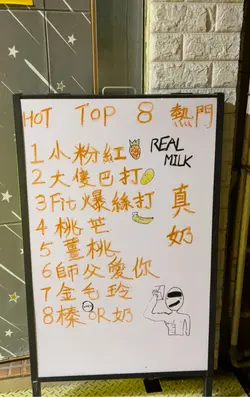 HOT TOP 8 熱門
1 小粉紅
REAL MILK
2 大傻巴打
3 Fit爆絲打
真奶
4 桃芒
5 薑桃
6 師父愛你
7 金包玲
8 榛 OR奶